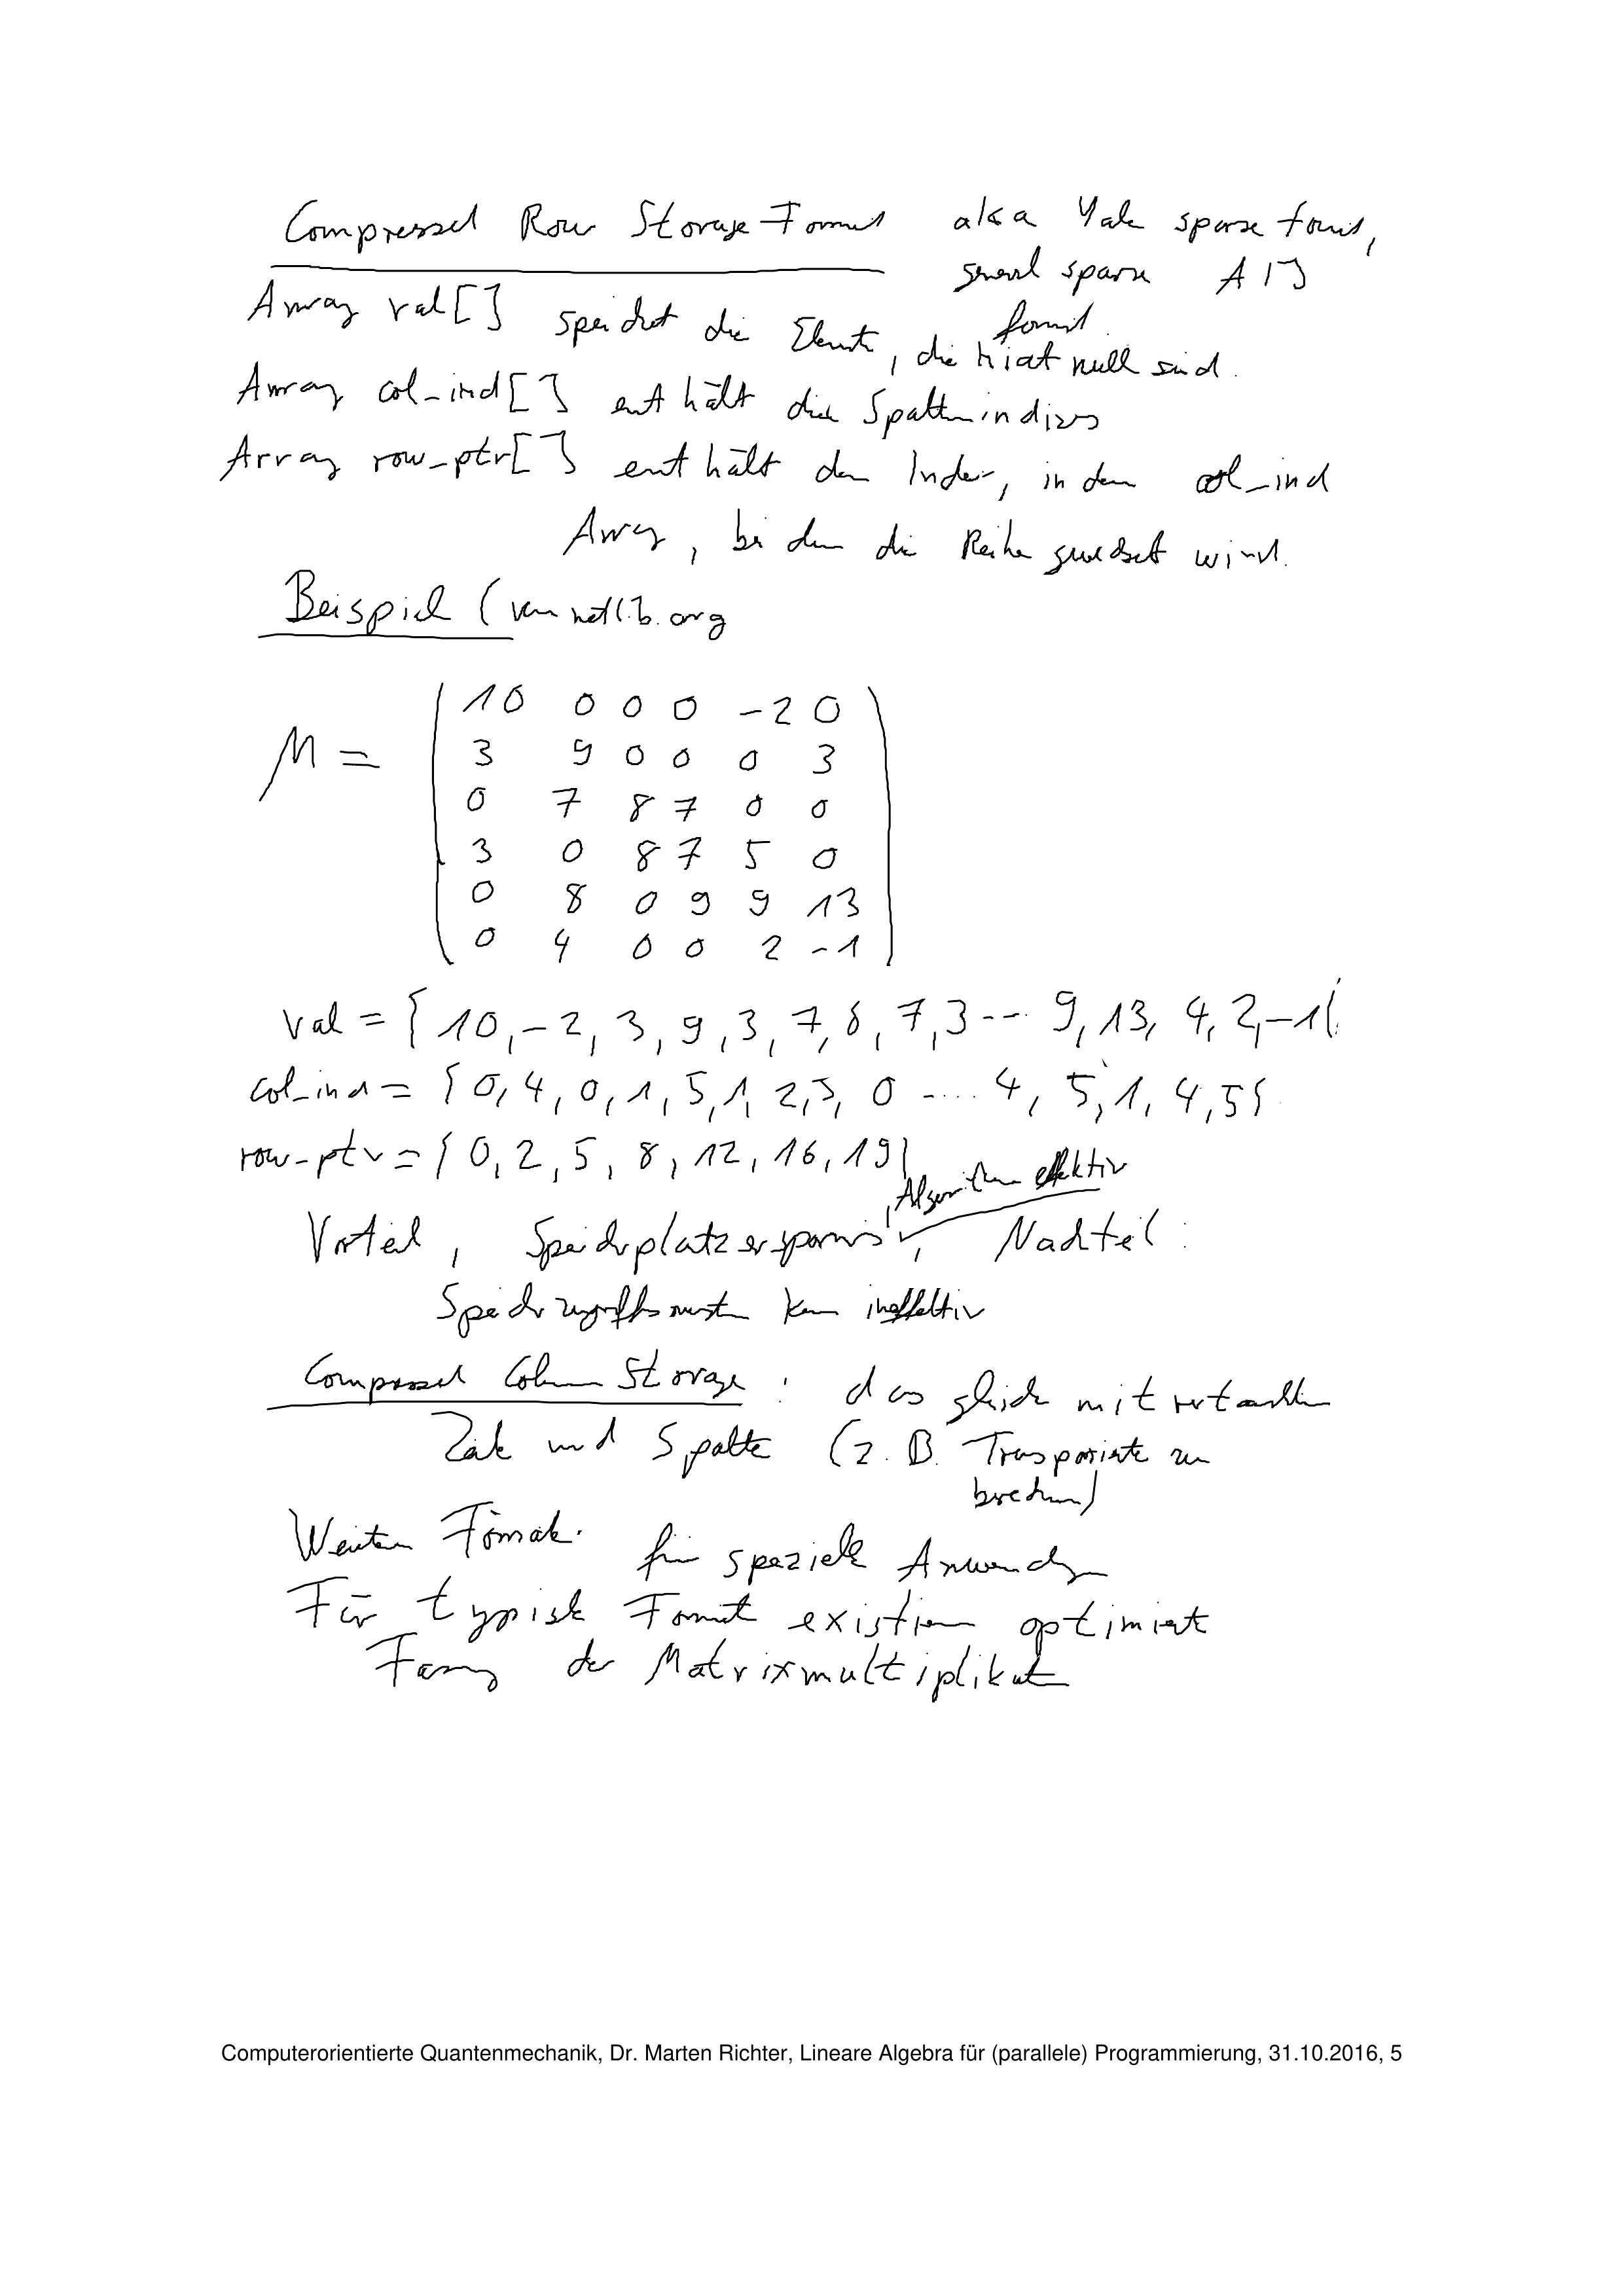 Compressed Row Storage-Format aka Yale sparse format,
general sparse AIJ
format
Array val[] speichert die Elemente, die nicht null sind.
Array col_ind[] enthält die Spaltenindizes
Array row_ptr[] enthält den Index, in dem col_ind
Array, bei dem die Reihe gewechselt wird.
Beispiel (von netlib.org
M =
10 0 0 0 -2 0
3 9 0 0 0 3
0 7 8 7 0 0
3 0 8 7 5 0
0 8 0 9 9 13
0 4 0 0 2 -1
val = { 10, -2, 3, 9, 3, 7, 8, 7, 3 --- 9, 13, 4, 2, -1}
col_ind = { 0, 4, 0, 1, 5, 1, 2, 3, 0 .... 4, 5, 1, 4, 5}
row_ptr = { 0, 2, 5, 8, 12, 16, 19}
, Algorithmen effektiv
Vorteil, Speicherplatzersparnis, Nachteil:
Speicherzugriffsmuster kann ineffektiv
Compressed Column Storage: das gleiche mit vertauschten
Zeile und Spalte (z.B. Transponierte zu
berechnen)
Weitere Formate: für spezielle Anwendungen
Für typische Formate existieren optimierte
der Matrixmultiplikation
Computerorientierte Quantenmechanik, Dr. Marten Richter, Lineare Algebra für (parallele) Programmierung, 31.10.2016, 5